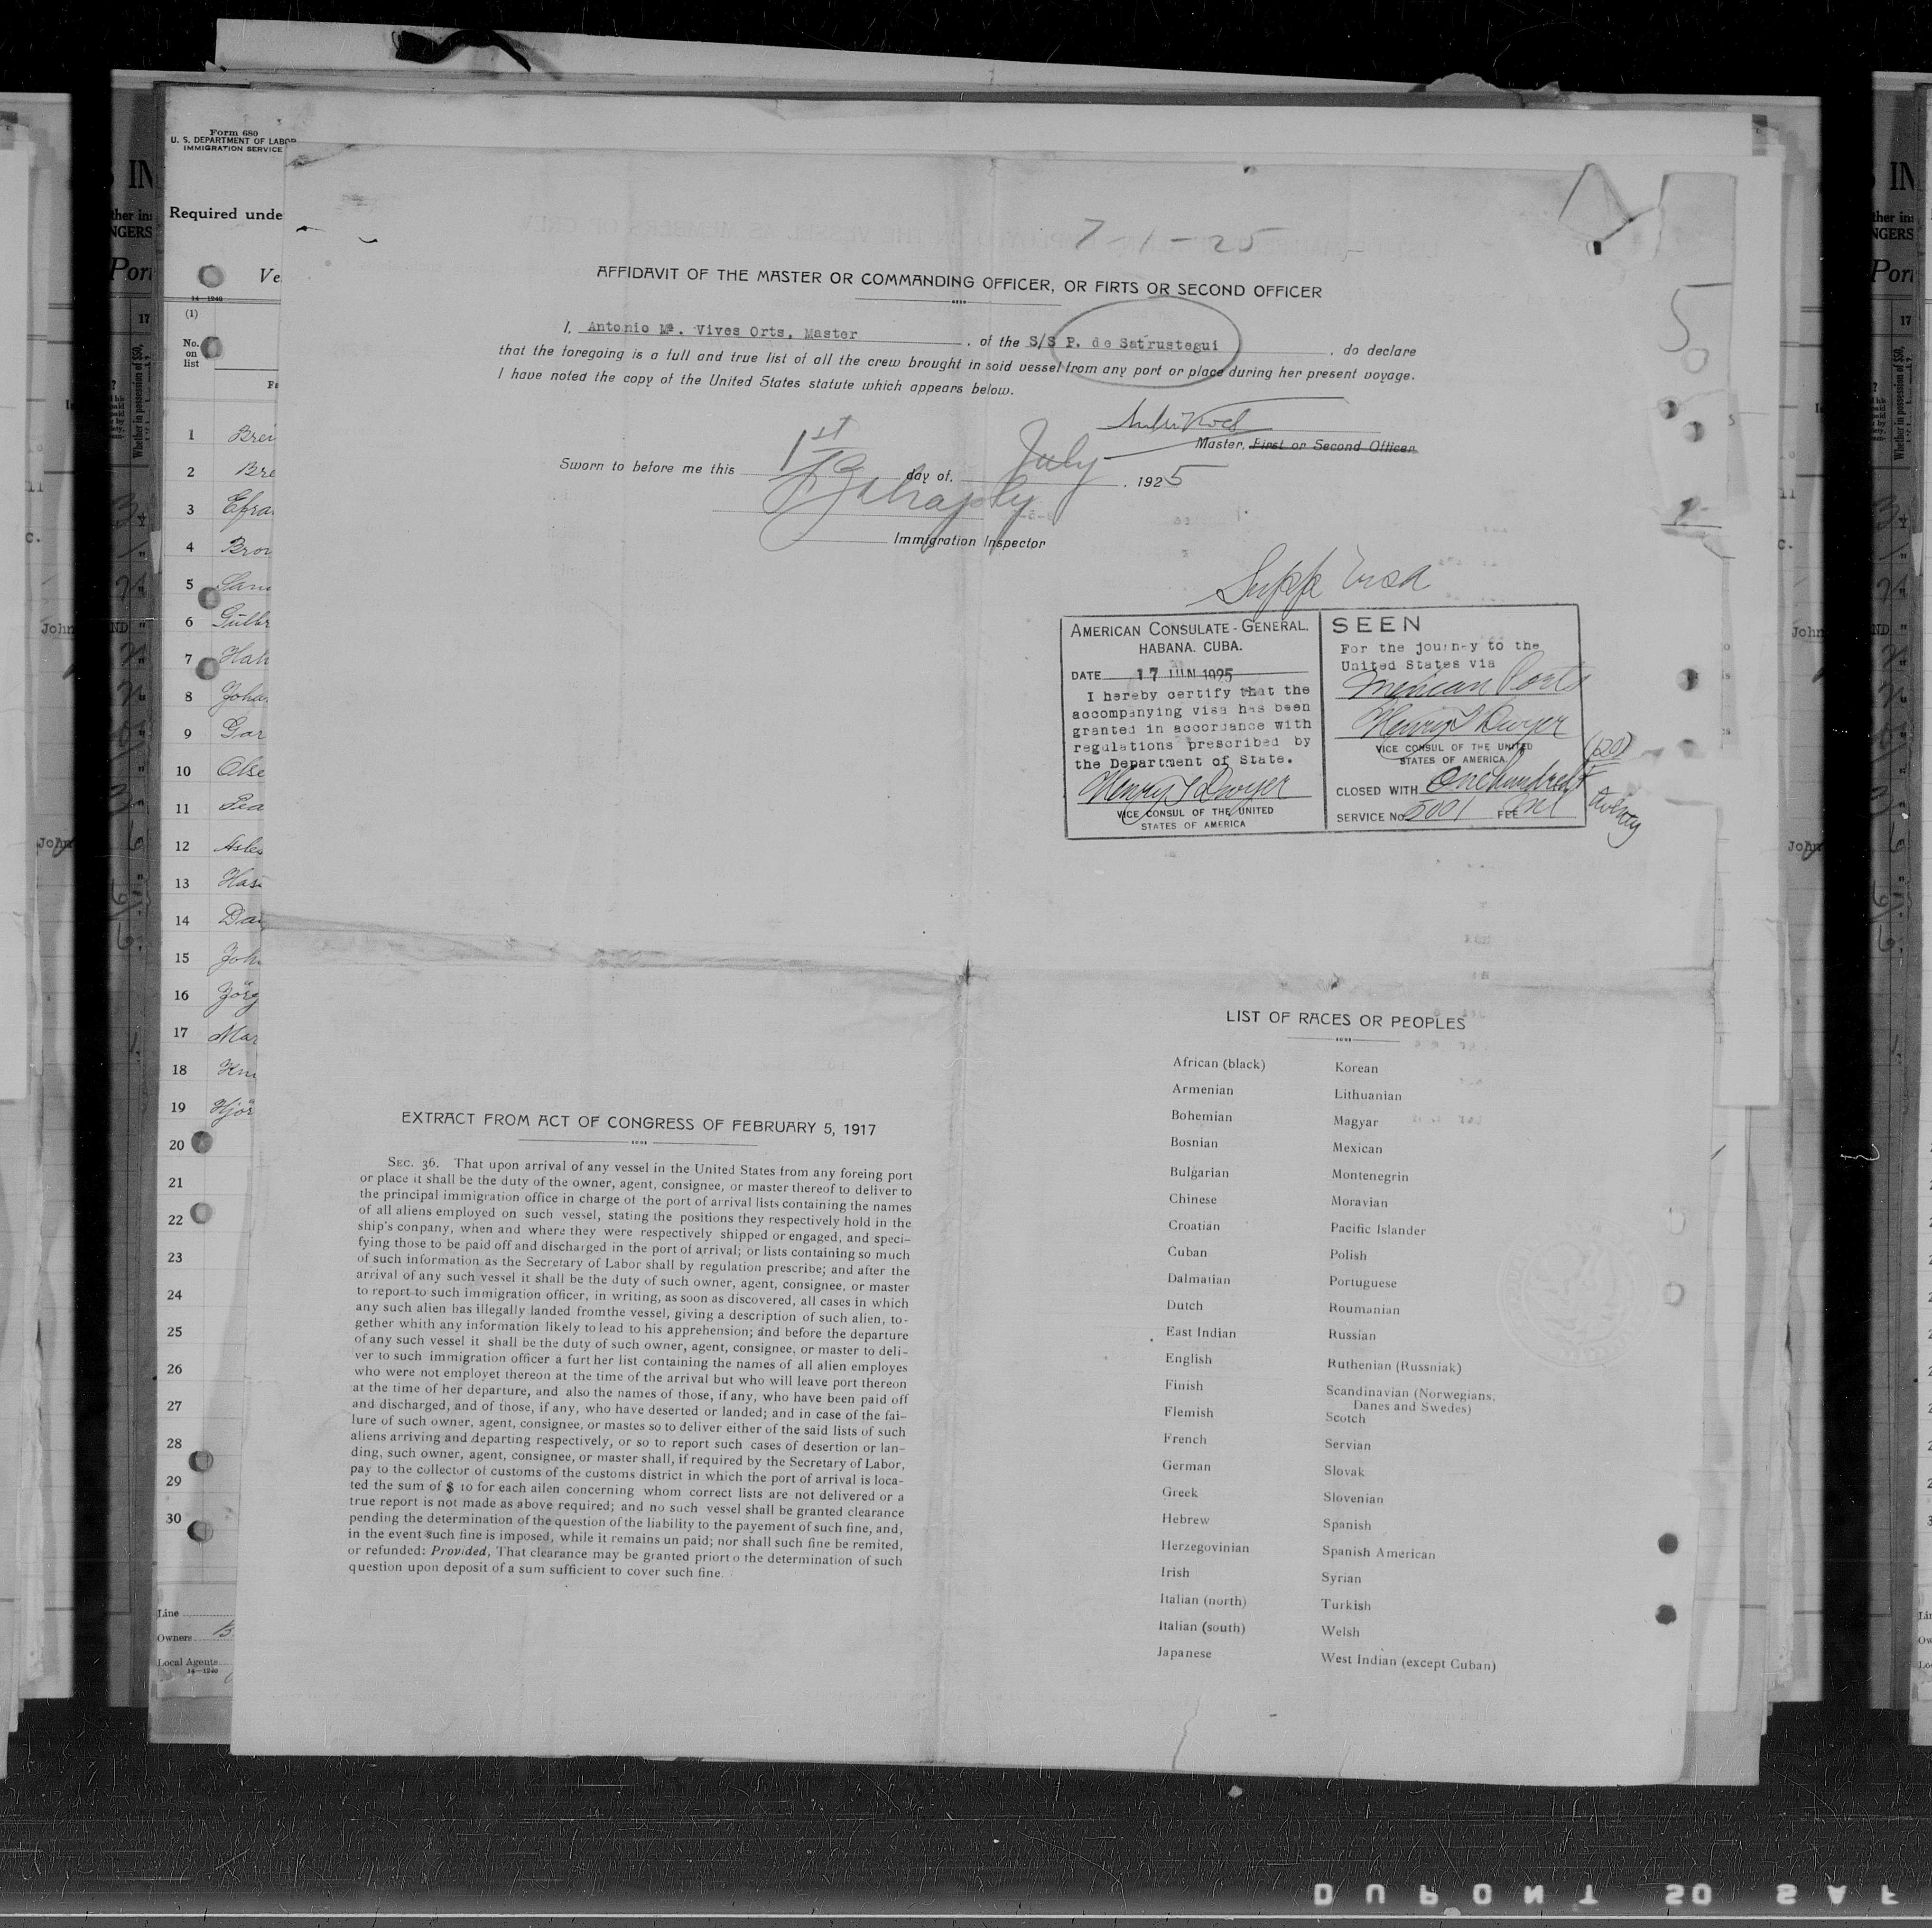 Form 680
U. S. DEPARTMENT OF LABOR
IMMIGRATION SERVICE
Required unde
Ve
14—1240
(1)
No. on list
1 Brei
2 Bre
3 Efra
4 Bron
5
6 Gulbr
7 Hah
8 Joha
9 Gar
10 Olse
11 Pea
12 Asles
13 Hass
14 Dan
15 Joh
16 Jörg
17 Mar
18 Knu
19 Hjör
20
21
22
23
24
25
26
27
28
29
30
Line
Owners B
Local Agents
14—1240
7-1-25
AFFIDAVIT OF THE MASTER OR COMMANDING OFFICER, OR FIRTS OR SECOND OFFICER
I, Antonio Mª. Vives Orts, Master, of the S/S P. de Satrustegui, do declare
that the foregoing is a full and true list of all the crew brought in said vessel from any port or place during her present voyage.
I have noted the copy of the United States statute which appears below.
Master, First or Second Officer
Sworn to before me this 1st day of July, 1925
Immigration Inspector
50
Supp Visa
AMERICAN CONSULATE-GENERAL,
HABANA. CUBA.
DATE 17 JUN 1925
I hereby certify that the
accompanying visa has been
granted in accordance with
regulations prescribed by
the Department of State.
Henry T Dwyer
VICE CONSUL OF THE UNITED
STATES OF AMERICA
SEEN
For the journey to the
United States via
Mexican Ports
Henry T Dwyer
VICE CONSUL OF THE UNITED
STATES OF AMERICA
CLOSED WITH One hundred & twenty (120)
SERVICE No. 5001 FEE Nil
EXTRACT FROM ACT OF CONGRESS OF FEBRUARY 5, 1917
SEC. 36. That upon arrival of any vessel in the United States from any foreing port
or place it shall be the duty of the owner, agent, consignee, or master thereof to deliver to
the principal immigration office in charge of the port of arrival lists containing the names
of all aliens employed on such vessel, stating the positions they respectively hold in the
ship's conpany, when and where they were respectively shipped or engaged, and speci-
fying those to be paid off and discharged in the port of arrival; or lists containing so much
of such information as the Secretary of Labor shall by regulation prescribe; and after the
arrival of any such vessel it shall be the duty of such owner, agent, consignee, or master
to report to such immigration officer, in writing, as soon as discovered, all cases in which
any such alien has illegally landed fromthe vessel, giving a description of such alien, to-
gether whith any information likely to lead to his apprehension; and before the departure
of any such vessel it shall be the duty of such owner, agent, consignee, or master to deli-
ver to such immigration officer a furt her list containing the names of all alien employes
who were not employet thereon at the time of the arrival but who will leave port thereon
at the time of her departure, and also the names of those, if any, who have been paid off
and discharged, and of those, if any, who have deserted or landed; and in case of the fai-
lure of such owner, agent, consignee, or mastes so to deliver either of the said lists of such
aliens arriving and departing respectively, or so to report such cases of desertion or lan-
ding, such owner, agent, consignee, or master shall, if required by the Secretary of Labor,
pay to the collector of customs of the customs district in which the port of arrival is loca-
ted the sum of $ 10 for each ailen concerning whom correct lists are not delivered or a
true report is not made as above required; and no such vessel shall be granted clearance
pending the determination of the question of the liability to the payement of such fine, and,
in the event such fine is imposed, while it remains un paid; nor shall such fine be remited,
or refunded: Provided, That clearance may be granted priort o the determination of such
question upon deposit of a sum sufficient to cover such fine.
LIST OF RACES OR PEOPLES
African (black)
Armenian
Bohemian
Bosnian
Bulgarian
Chinese
Croatian
Cuban
Dalmatian
Dutch
East Indian
English
Finish
Flemish
French
German
Greek
Hebrew
Herzegovinian
Irish
Italian (north)
Italian (south)
Japanese
Korean
Lithuanian
Magyar
Mexican
Montenegrin
Moravian
Pacific Islander
Polish
Portuguese
Roumanian
Russian
Ruthenian (Russniak)
Scandinavian (Norwegians,
Danes and Swedes)
Scotch
Servian
Slovak
Slovenian
Spanish
Spanish American
Syrian
Turkish
Welsh
West Indian (except Cuban)
DUPONT 50 SAF